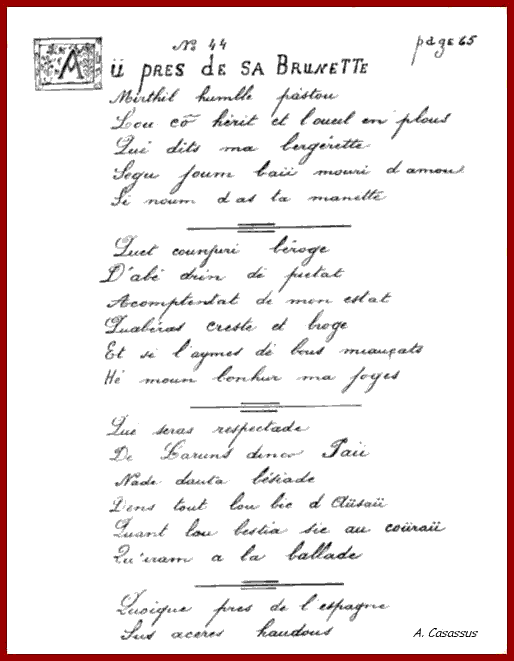 Nº 44
page 65
Aü pres de sa Brunette
Mirthil humble pastou
Lou cô hérit et l'oueil en plous
Qué dits ma bergérette
Segu joum baü mouri d amou
Si noum das ta manette
Quet counjuri béroge
D'abé drin dé pietat
A comptentat de mon estat
Quabéras creste et broge
Et si l'aymes dé bous miauçats
Hé moun bonhur ma joyes
Qué seras respectade
De Laruns dinco Paü
Nade dauta bésiade
Dens tout lou bic d Aüsaü
Quant lou bestia sie au coüraü
Qu'iram a la ballade
Quoique pres de l'espagne
Sus aceres haudous
A. Casassus